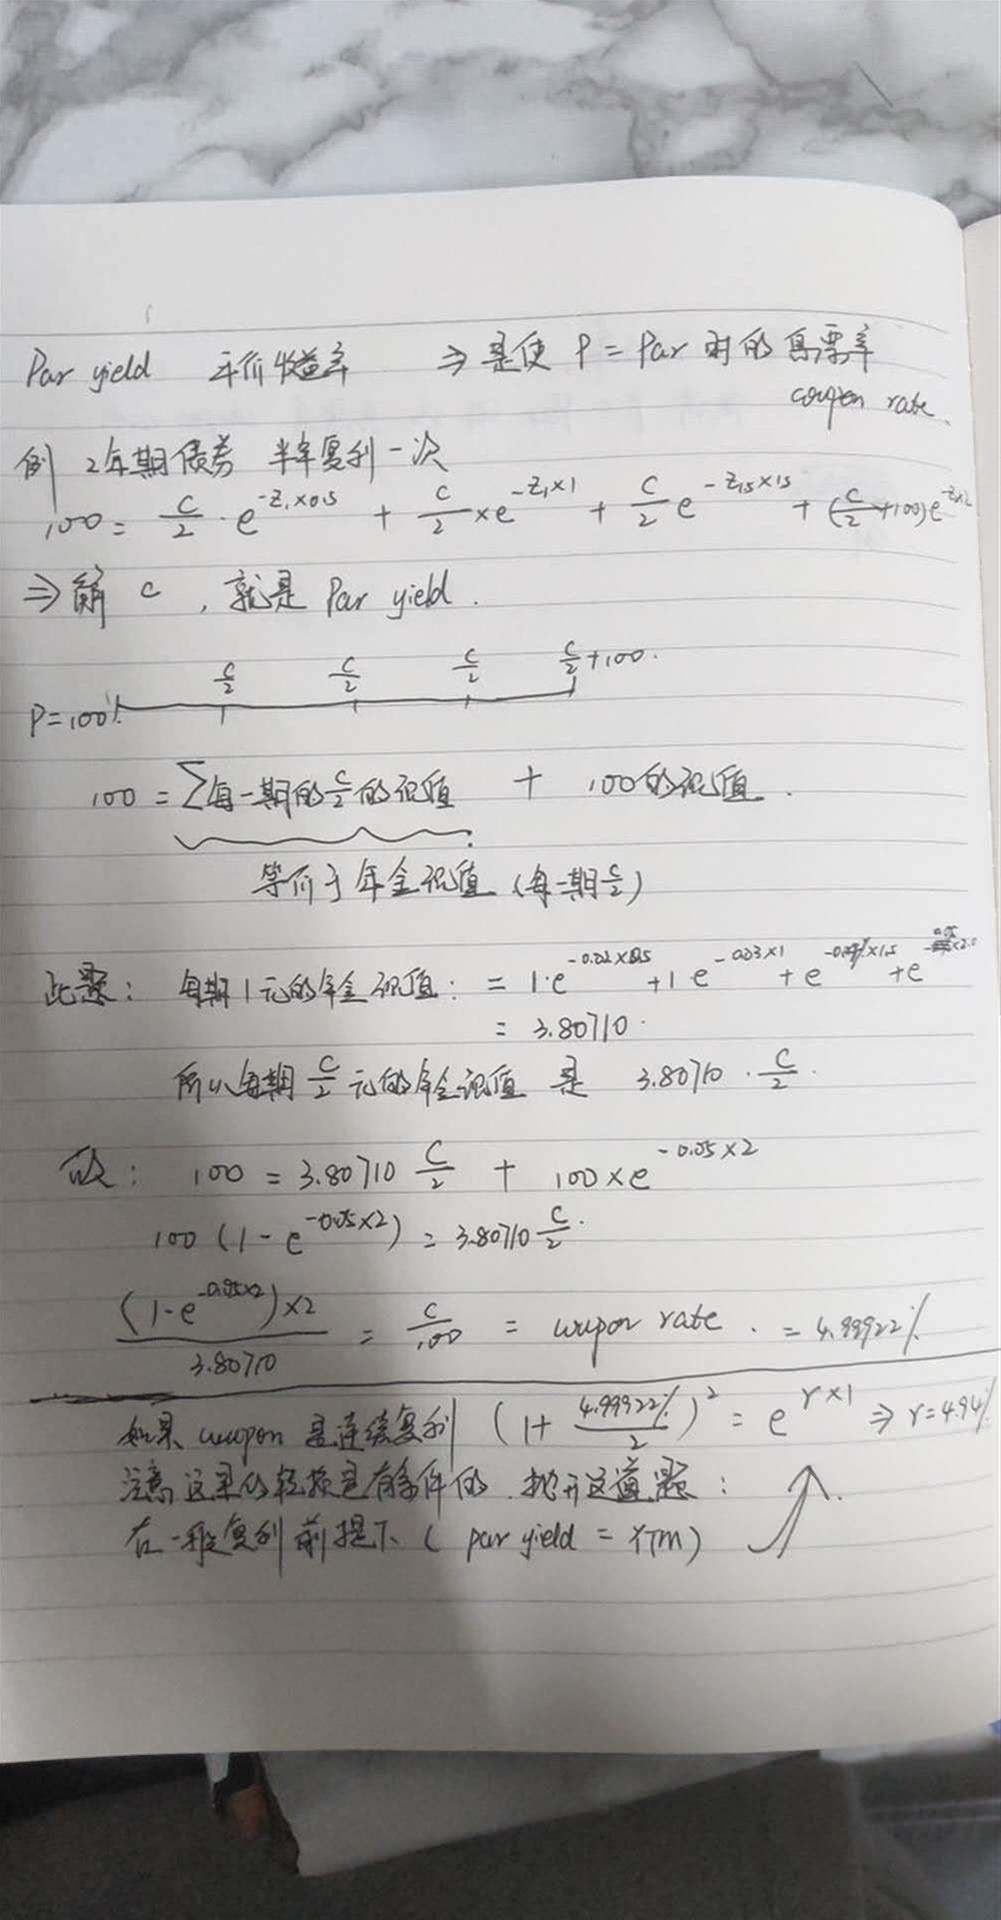 Par yield 平价收益率 ⇒ 是使 P = Par 时的 息票率
coupon rate.
例 2年期债券 半年复利一次
100 = C/2 · e^(-Z₁×0.5) + C/2 × e^(-Z₁×1) + C/2 e^(-Z₁.₅×1.5) + (C/2+100)e^(-Z×2)
⇒ 解 C , 就是 Par yield .
C/2 C/2 C/2 C/2+100.
P=100
100 = ∑每一期的C/2的现值 + 100的现值 .
等价于年金现值 (每一期C/2)
此题: 每期1元的年金现值: = 1·e^(-0.02×0.5) + 1 e^(-0.03×1) + e^(-0.04×1.5) + e^(-0.05×2.0)
= 3.80710.
所以每期 C/2 元的年金现值 是 3.80710 · C/2 .
故: 100 = 3.80710 C/2 + 100×e^(-0.05×2)
100 (1-e^(-0.05×2)) = 3.80710 C/2 .
(1-e^(-0.05×2))×2 / 3.80710 = C/100 = coupon rate . = 4.99922%
如果 coupon 是连续复利 (1+ 4.99922%/2)² = e^(r×1) ⇒ r=4.94%
注意这里的转换是有条件的. 抛开这道题:
在一般复利前提下 ( par yield = YTM)